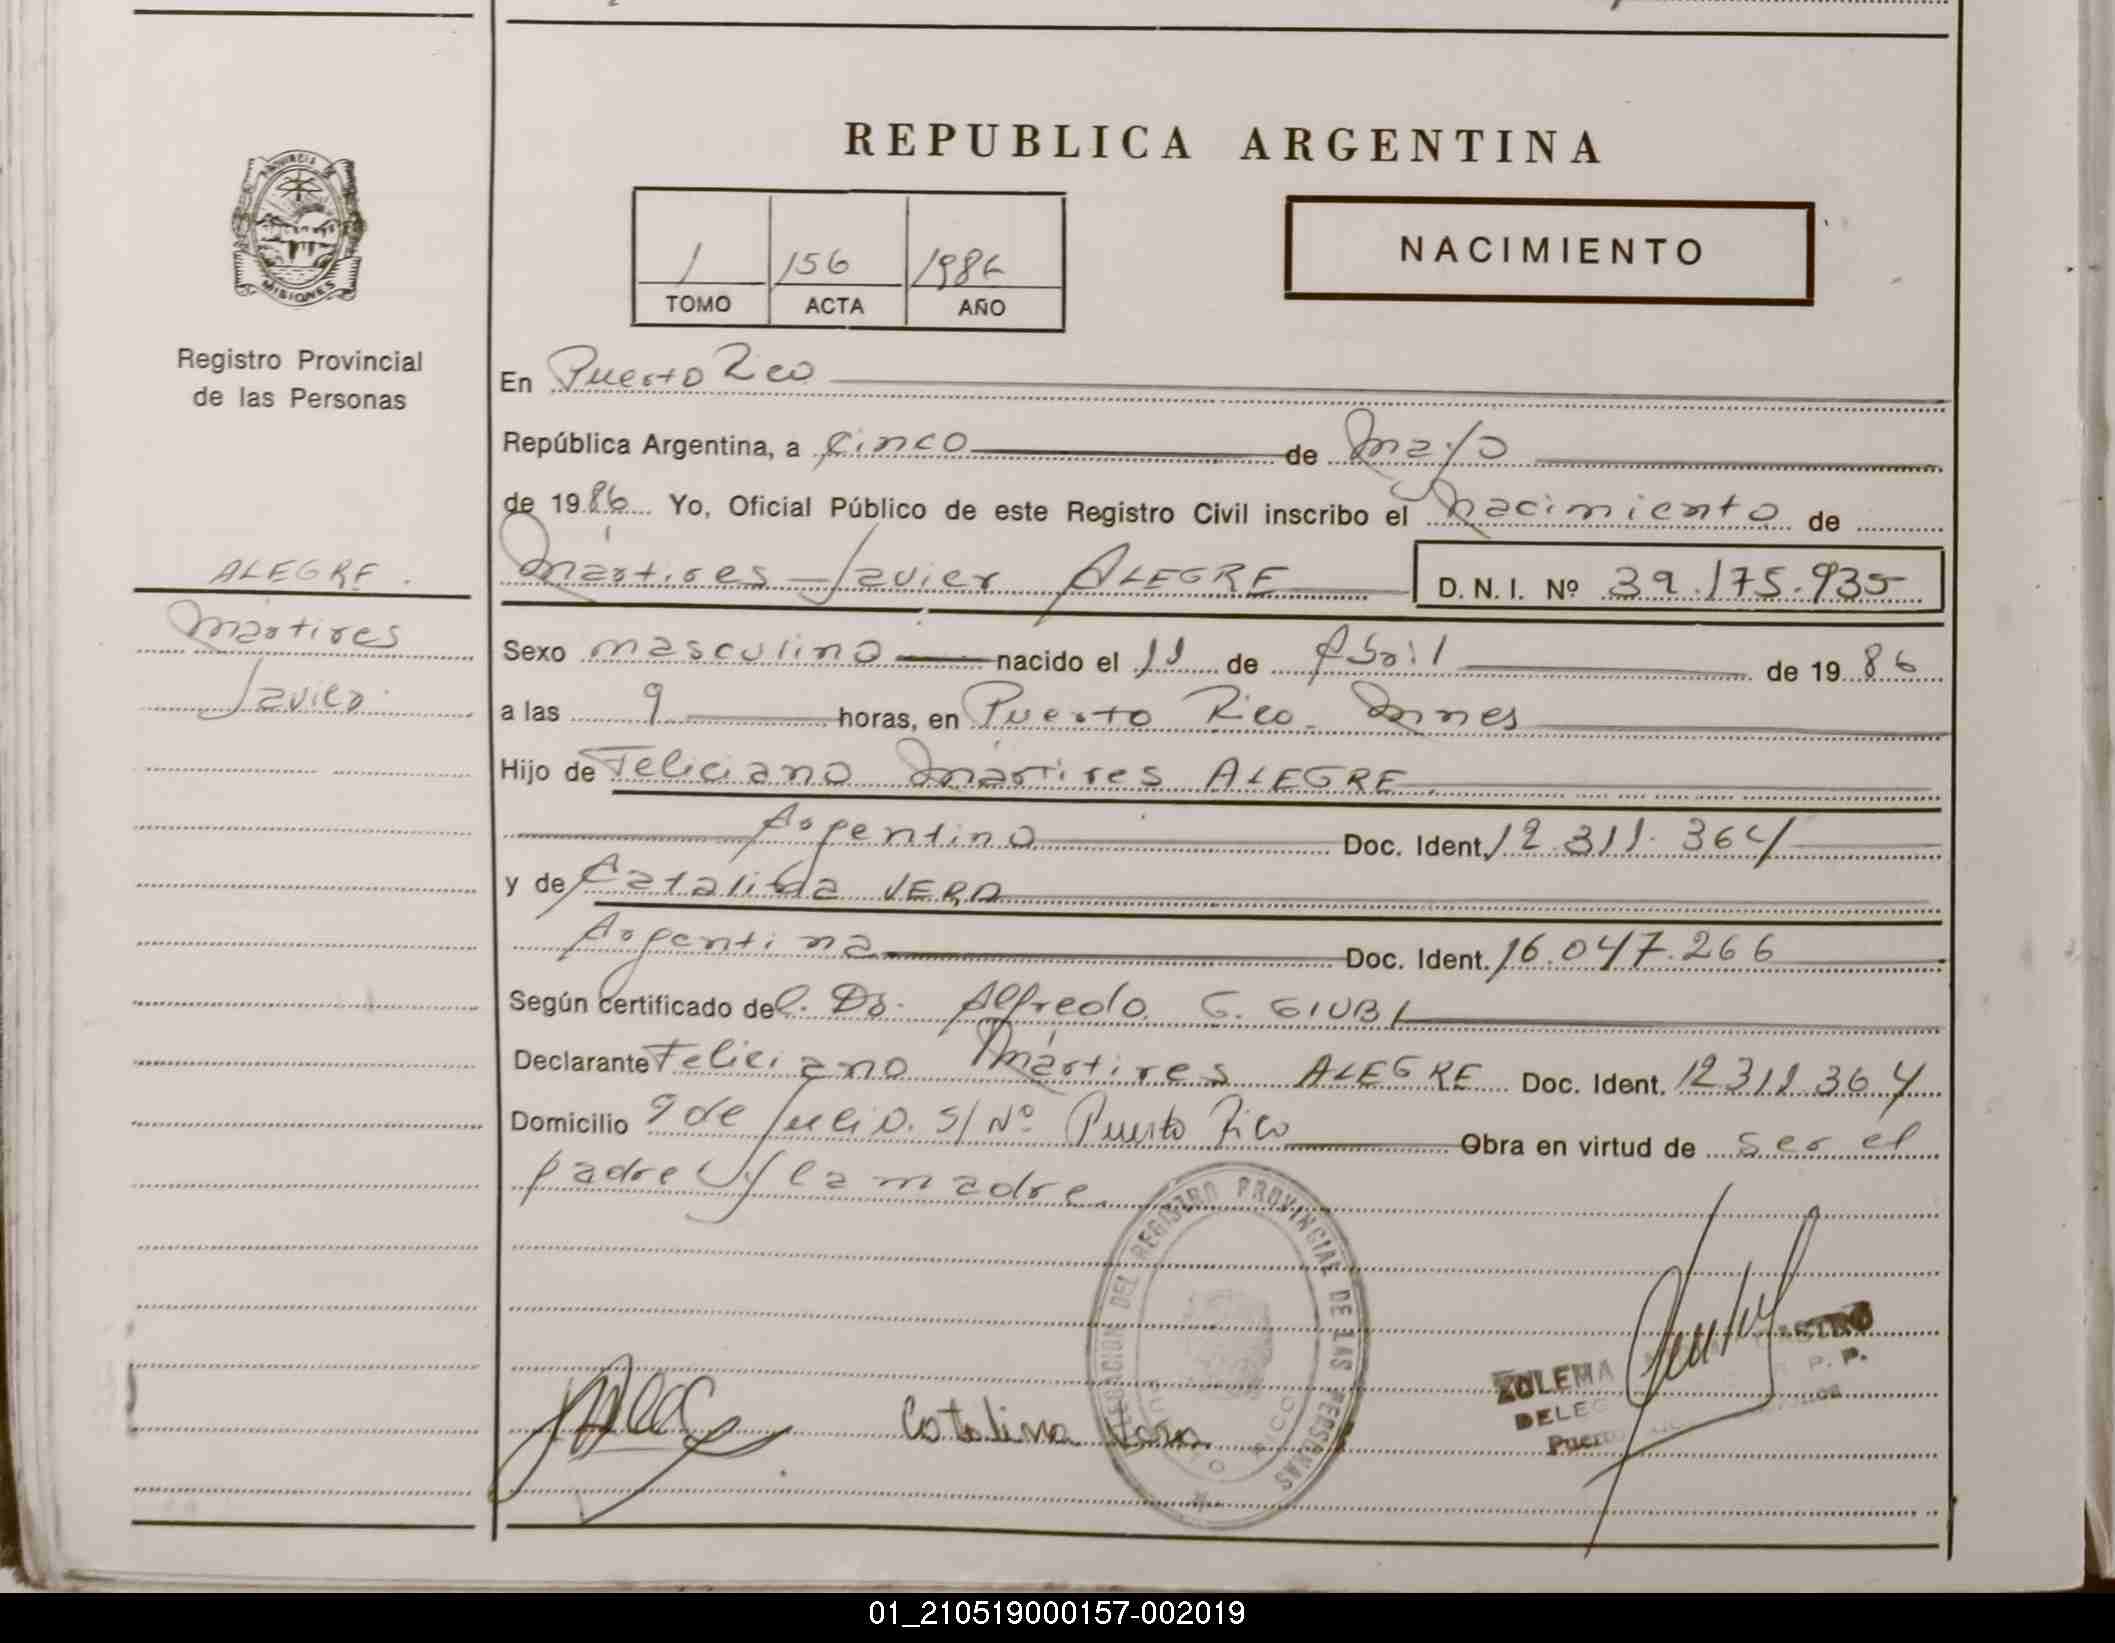 PROVINCIA DE
MISIONES
Registro Provincial
de las Personas
ALEGRE.
Mártires
Javier
REPUBLICA ARGENTINA
1 156 1986
TOMO ACTA AÑO
NACIMIENTO
En Puerto Rico
República Argentina, a cinco de Mayo
de 1986 Yo, Oficial Público de este Registro Civil inscribo el Nacimiento de
Mártires Javier ALEGRE D. N. I. Nº 39.175.935
Sexo masculino nacido el 11 de Abril de 1986
a las 9 horas, en Puerto Rico Mnes
Hijo de Feliciano Mártires ALEGRE
Argentino Doc. Ident. 12.311.364
y de Catalina VERA
Argentina Doc. Ident. 16.047.266
Según certificado del. Dr. Alfredo G. GIUBI
Declarante Feliciano Mártires ALEGRE Doc. Ident. 12311364
Domicilio 9 de Julio. S/Nº Puerto Rico Obra en virtud de ser el
padre y la madre.
DELEGACION DEL REGISTRO PROVINCIAL DE LAS PERSONAS
PUERTO RICO
Catalina Vera
ZULEMA CASTRO
P. P.
01_210519000157-002019